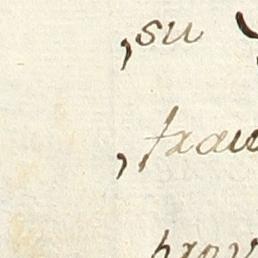 ,su
,trau
prov